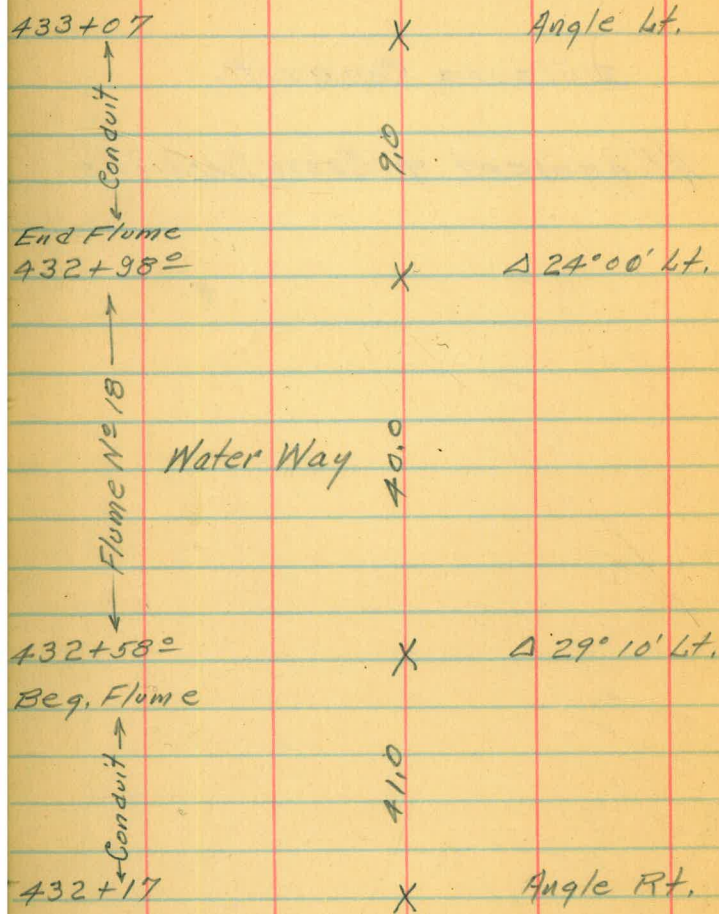 433+07 Angle Lt.
← Conduit →
9.0
End Flume
432+98º Δ 24°00' Lt.
← Flume Nº 18 →
Water Way
40.0
432+58º Δ 29°10' Lt.
Beg. Flume
← Conduit →
41.0
432+17 Angle Rt.